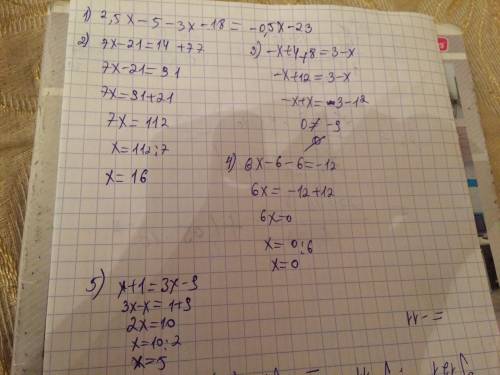 1) 2,5x-5-3x-18= -0,5x-23
2) 7x-21=14+77
7x-21=91
7x=91+21
7x=112
x=112:7
x=16
3) -x+4+8=3-x
-x+12=3-x
-x+x=3-12
0≠-9
∅
4) 6x-6-6=-12
6x= -12+12
6x=0
x=0:6
x=0
5) x+1=3x-9
3x-x=1+9
2x=10
x=10:2
x=5
=-11